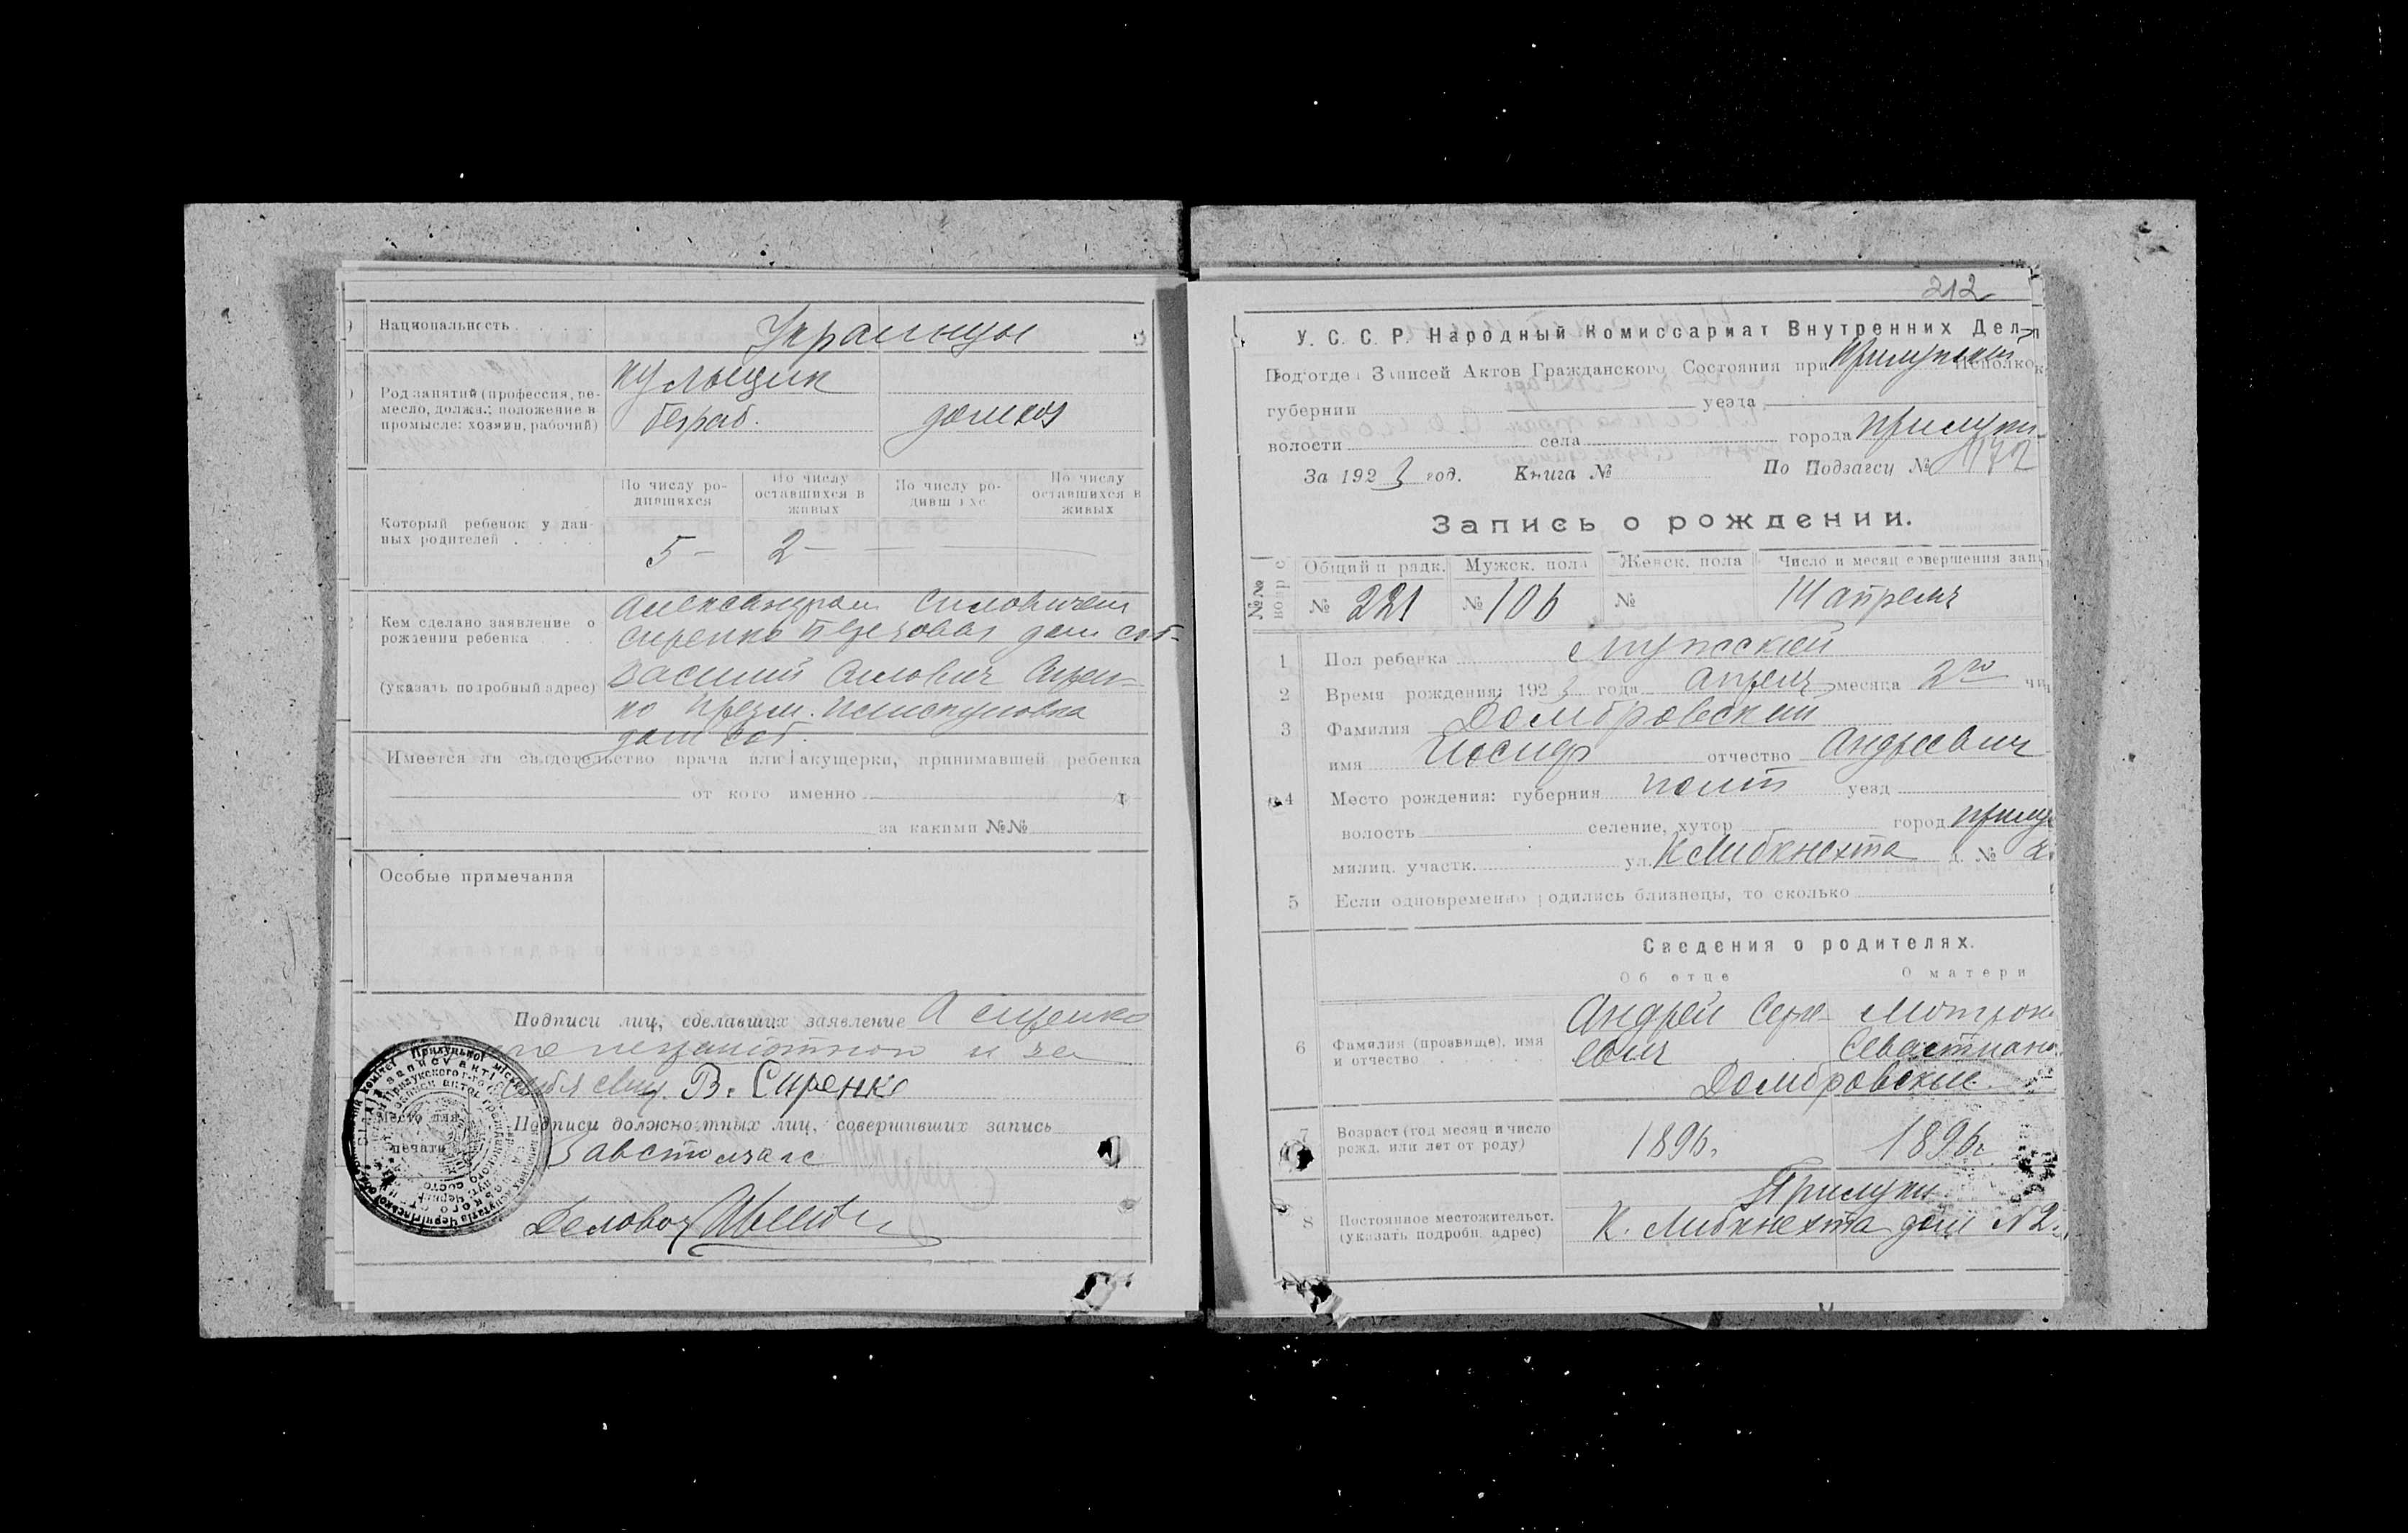 Национальность
Украинцы
Род занятий (профессия, ре-
месло, должн.; положение в
промысле: хозяин, рабочий)
безраб.
домхоз
Который ребенок у дан-
ных родителей
По числу ро-
дившихся
По числу
оставшихся в
живых
По числу ро-
дивш хс
По числу
оставшихся в
живых
5 – 2 –
Кем сделано заявление о
рождении ребенка
(указать подробный адрес)
Александром Силовичем
Сиренко дом соб-
Василий Силович Сирен-
ко
дом соб.
Имеется ли свидетельство врача или акушерки, принимавшей ребенка
от кого именно
за какими №№
Особые примечания
Подписи лиц, сделавших заявление А Сиренко
и за
В. Сиренко
Подписи должностных лиц, совершивших запись
Место для
печати
Завстолзагс
Деловод
212
У. С. С. Р. Народный Комиссариат Внутренних Дел
Подотдел Записей Актов Гражданского Состояния при Прилукском Исполком
губернии уезда
волости села города Прилуки
За 1923 год. Книга № По Подзагсу №
Запись о рождении.
Общий п рядк. Мужск. пола Женск. пола Число и месяц совершения зап
№ 221 № 106 № 14 апреля
1 Пол ребенка мужской
2 Время рождения: 1923 года апреля месяца 2го чи
3 Фамилия Домбровский
имя Иосиф отчество Андреевич
4 Место рождения: губерния Полт уезд
волость селение, хутор город Прилу
милиц. участк. ул. К Либкнехта д. № 2
5 Если одновременно родились близнецы, то сколько
Сведения о родителях.
Об отце О матери
6 Фамилия (прозвище), имя
и отчество
Андрей Серге- Мотрон
евич Севастиано
Домбровские
7 Возраст (год месяц и число
рожд. или лет от роду)
1896. 1896г.
8 Постоянное местожительст.
(указать подробн. адрес)
Прилуки
К. Либкнехта дом N 2